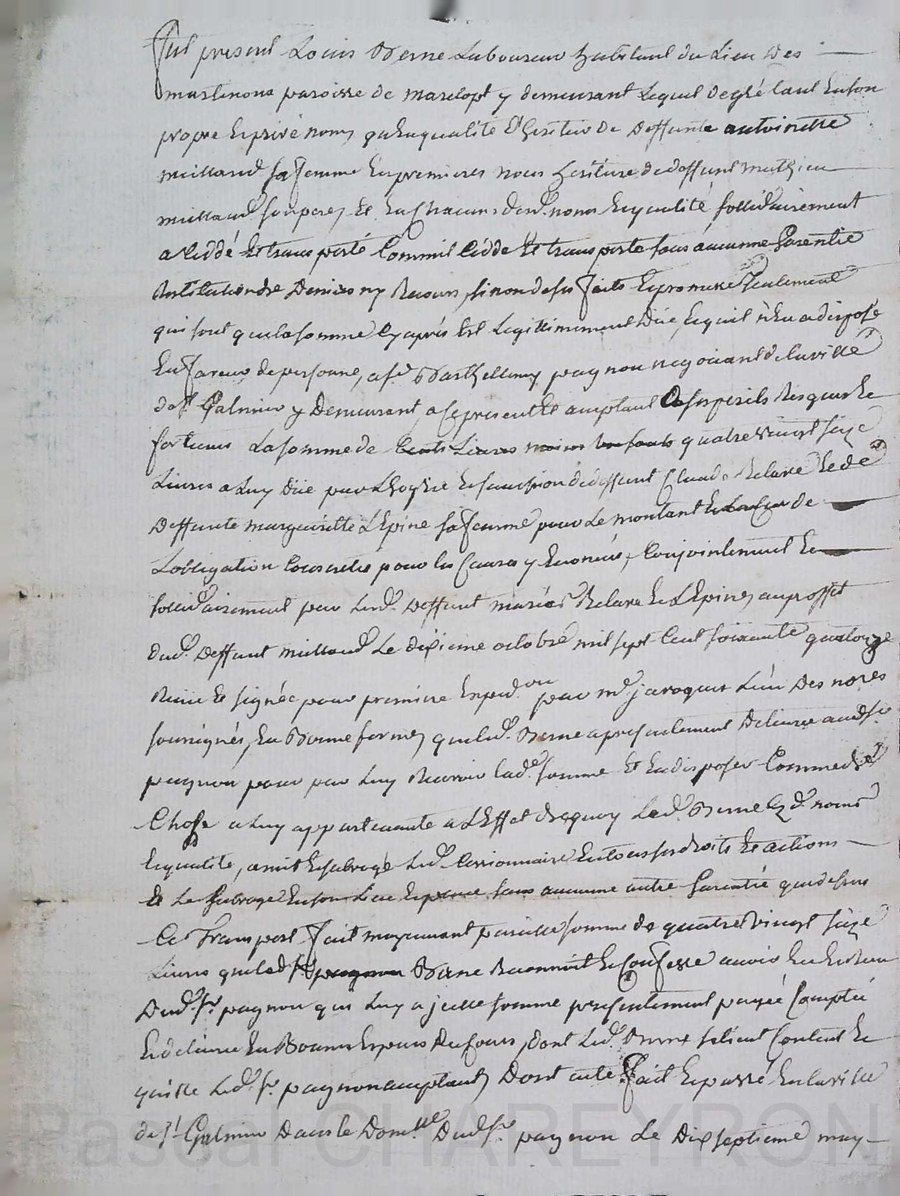 Fut présent Louis Berne Laboureur habitant du Lieu des
martinons paroisse de marclopt y demeurant Lequel de gré tant en son
propre et privé nom qu'en qualité d'héritier de deffunte antoinette
millaud sa femme en premieres noces héritiere de deffunt mathieu
millaud son pere, et en chacun desd. noms et qualité sollidairement
a ceddé et transporté comme il cedde et transporte sans aucunne Garentie
Restitution de Deniers ny Recours, sinon de ses faits et promesse seulement
qui sont que la somme cy après est Legittimement Düe, et qu'il n'en a disposé
en faveur de personne, a Sr. Barthellemy pagnon negociant de la ville
de St. Galmier y Demeurant a ce present et acceptant a ses perils Risques et
fortunes La somme de quatre vingt seize
Livres a Luy Düe par L'hoyrie et succession de deffunt Claude Relave et de
Deffunte margueritte L'Epine sa femme pour Le montant de
L'obligation consentie pour les causes y enoncées, conjointement et
sollidairement par lesd. deffunt mariés Relave et L'Epine, au proffit
dud. Deffunt millaud Le dixieme octobre mil sept cent soixante quatorze
Reçüe et signée pour premiere expedon par me. javogues L'un Des nores
soussignés, en Bonne forme, que led. Berne a presentement Delivrée aud. Sr.
pagnon pour par Luy Recevoir lad. somme et en disposer comme de
Chose a Luy appartenante a L'Effet de quoy Led. Berne esd. noms
et qualité, a mis et subrogé Led. Cessionnaire en tous ses droits et actions
et Le subroge en son Lieu et place sans aucunne autre Garentie que dessus
Ce Transport fait moyennant pareille somme de quatre vingt seize
Livres que led. Berne Reconnoit et Confesse avoir eu et Reçu
Dud. Sr. pagnon qui Luy a jcelle somme presentement payée Comptée
et delivrée en Bonnes Especes de Cours, dont Led. Berne se tient Content et
quitte Led. Sr. pagnon acceptant, Dont acte fait et passé en la ville
de St. Galmier Dans le Domlle Dud. Sr. pagnon Le Dix septieme may
Pascal CHAREYRON